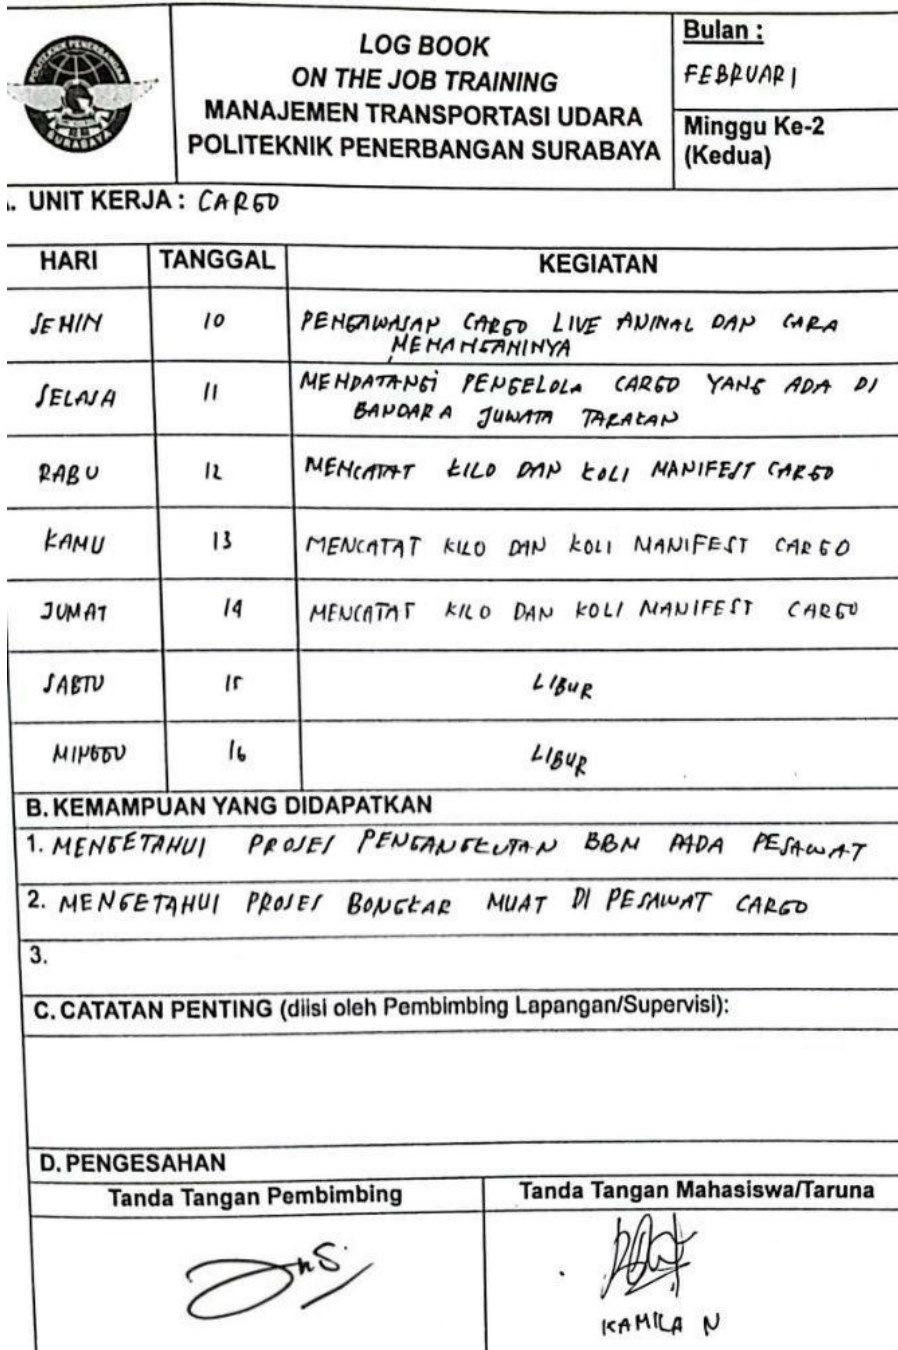 POLITEKNIK PENERBANGAN
SURABAYA
LOG BOOK
ON THE JOB TRAINING
MANAJEMEN TRANSPORTASI UDARA
POLITEKNIK PENERBANGAN SURABAYA
Bulan :
FEBRUARI
Minggu Ke-2
(Kedua)
. UNIT KERJA : CARGO
HARI TANGGAL KEGIATAN
SENIN 10 PENGAWASAN CARGO LIVE ANIMAL DAN CARA
MENANGANINYA
SELASA 11 MENDATANGI PENGELOLA CARGO YANG ADA DI
BANDARA JUWATA TARAKAN
RABU 12 MENCATAT KILO DAN KOLI MANIFEST CARGO
KAMIS 13 MENCATAT KILO DAN KOLI MANIFEST CARGO
JUMAT 14 MENCATAT KILO DAN KOLI MANIFEST CARGO
SABTU 15 LIBUR
MINGGU 16 LIBUR
B. KEMAMPUAN YANG DIDAPATKAN
1. MENGETAHUI PROSES PENGANGKUTAN BBM PADA PESAWAT
2. MENGETAHUI PROSES BONGKAR MUAT DI PESAWAT CARGO
3.
C. CATATAN PENTING (diisi oleh Pembimbing Lapangan/Supervisi):
D. PENGESAHAN
Tanda Tangan Pembimbing Tanda Tangan Mahasiswa/Taruna
KAMILA N